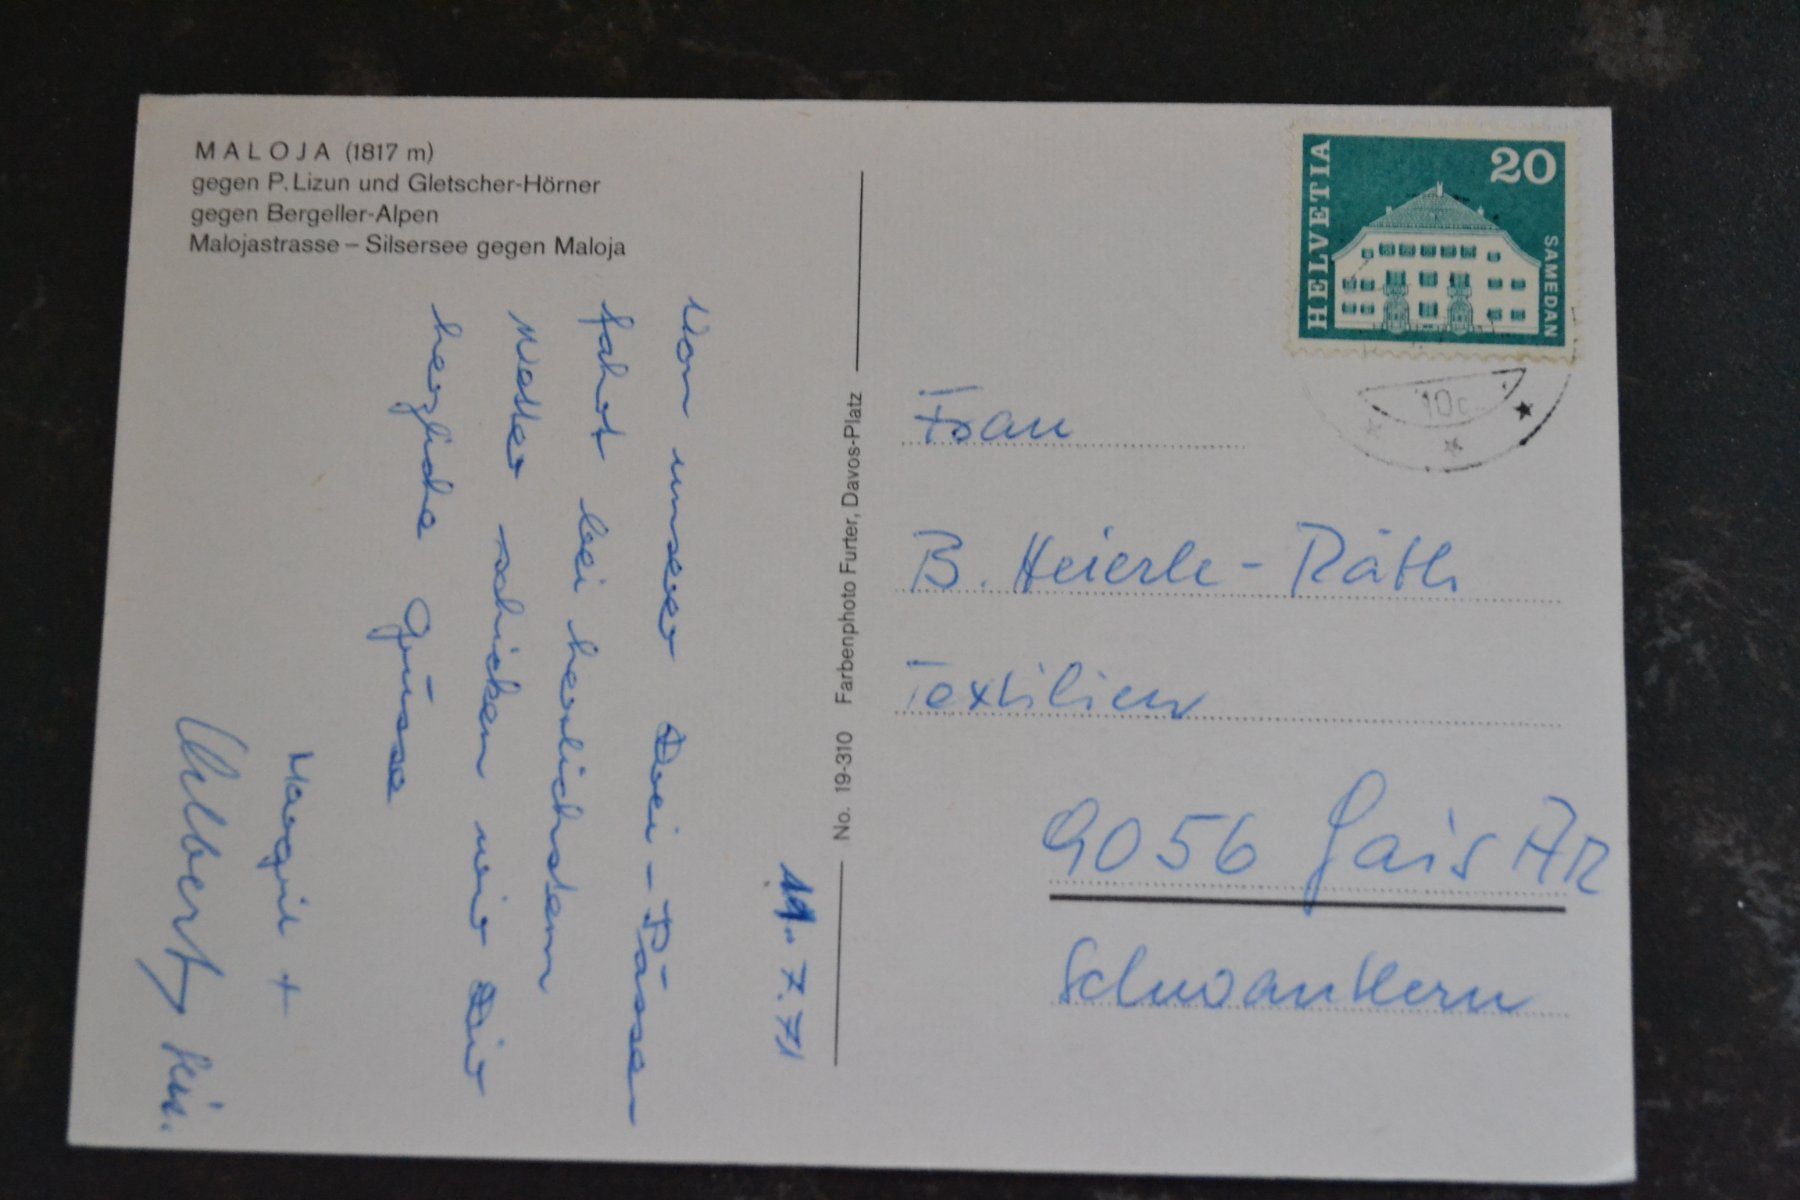 MALOJA (1817 m)
gegen P. Lizun und Gletscher-Hörner
gegen Bergeller-Alpen
Malojastrasse – Silsersee gegen Maloja
11. 7. 71
Von unser Drei-Pässe-
fahrt bei herrlichstem
Wetter schicken wir Dir
herzliche Grüsse
Margrit +
Albert
No. 19-310 Farbenphoto Furter, Davos-Platz
HELVETIA
20
SAMEDAN
Frau
B. Heierle-Räth
Textilien
9056 Gais AR
Schwantlern